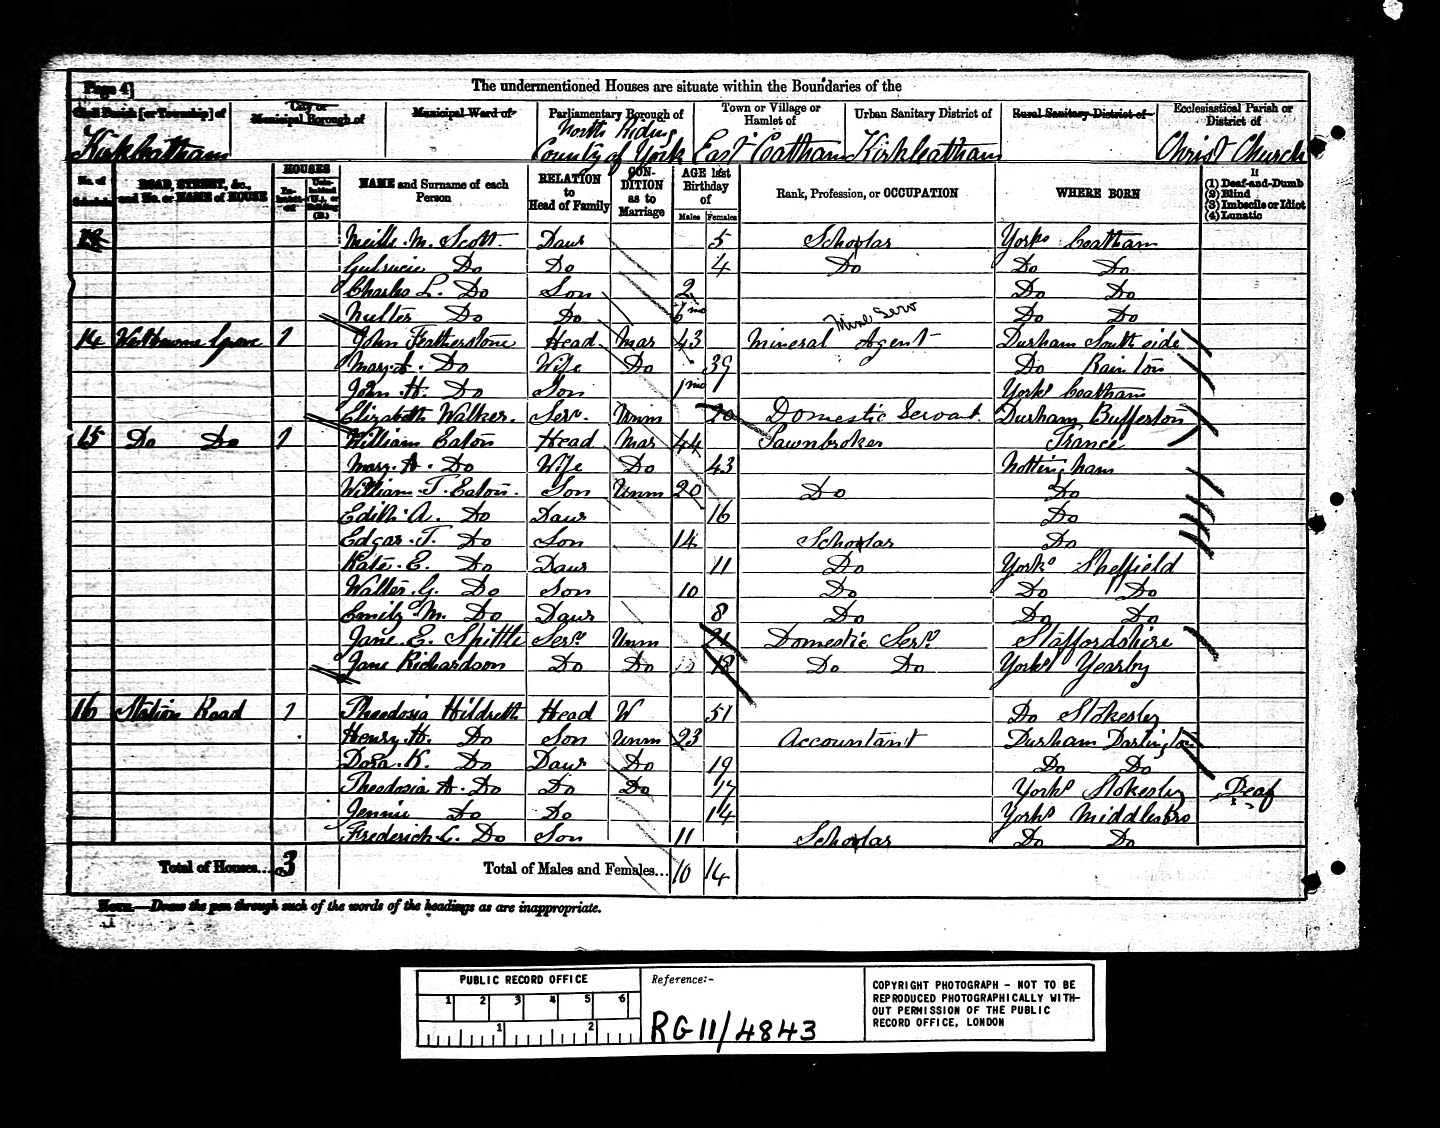 Page 4]
The undermentioned Houses are situate within the Boundaries of the
Civil Parish [or Township] of
City or Municipal Borough of
Municipal Ward of
Parliamentary Borough of
Town or Village or Hamlet of
Urban Sanitary District of
Rural Sanitary District of
Ecclesiastical Parish or District of
Kirkleatham
North Riding County of York
East Coatham
Kirkleatham
Christ Church
No. of Schedule
ROAD, STREET, &c., and No. or NAME of HOUSE
HOUSES
Inhabited
Uninhabited (U.), or Building (B.)
NAME and Surname of each Person
RELATION to Head of Family
CONDITION as to Marriage
AGE last Birthday of
Males Females
Rank, Profession, or OCCUPATION
WHERE BORN
If (1) Deaf-and-Dumb (2) Blind (3) Imbecile or Idiot (4) Lunatic
M. Scott Daur 5 Scholar Yorks Coatham
Do Do 4 Do Do Do
Charles L. Do Son 2 Do Do
Do Do 6 mo Do Do
Mine Serv
14 Grove 1 John Featherstone Head Mar 43 Mineral Agent Durham South side
Mary A. Do Wife Do 39 Do Rainton
John H. Do Son 1 mo Yorks Coatham
Elizabeth Walker. Serv. Unm 20 Domestic Servant. Durham Bufferton
15 Do Do 1 William Eaton Head Mar 44 Pawnbroker France
Mary A. Do Wife Do 43 Nottingham
William T. Eaton. Son Unm 20 Do Do
Edith A. Do Daur 16 Do
Edgar T. Do Son 14 Scholar Do
Kate E. Do Daur 11 Do Yorks Sheffield
Walter G. Do Son 10 Do Do Do
Emily M. Do Daur 8 Do Do Do
Jane E. Spittle Servt Unm 21 Domestic Servt Staffordshire
Jane Richardson Do Do 18 Do Do Yorks Yearby
16 Station Road 1 Theodosia Hildreth Head W 51 Do Stokesley
Henry H. Do Son Unm 23 Accountant Durham Darlington
Dora K. Do Daur Do 19 Do Do
Theodosia A. Do Do Do 17 Yorks Stokesley Deaf
Jennie Do Do 14 Yorks Middlesbro
Frederick C. Do Son 11 Scholar Do Do
Total of Houses... 3 Total of Males and Females... 10 14
NOTE.—Draw the pen through such of the words of the headings as are inappropriate.
PUBLIC RECORD OFFICE
1 2 3 4 5 6
1 2
Reference:-
RG 11/4843
COPYRIGHT PHOTOGRAPH - NOT TO BE
REPRODUCED PHOTOGRAPHICALLY WITH-
OUT PERMISSION OF THE PUBLIC
RECORD OFFICE, LONDON